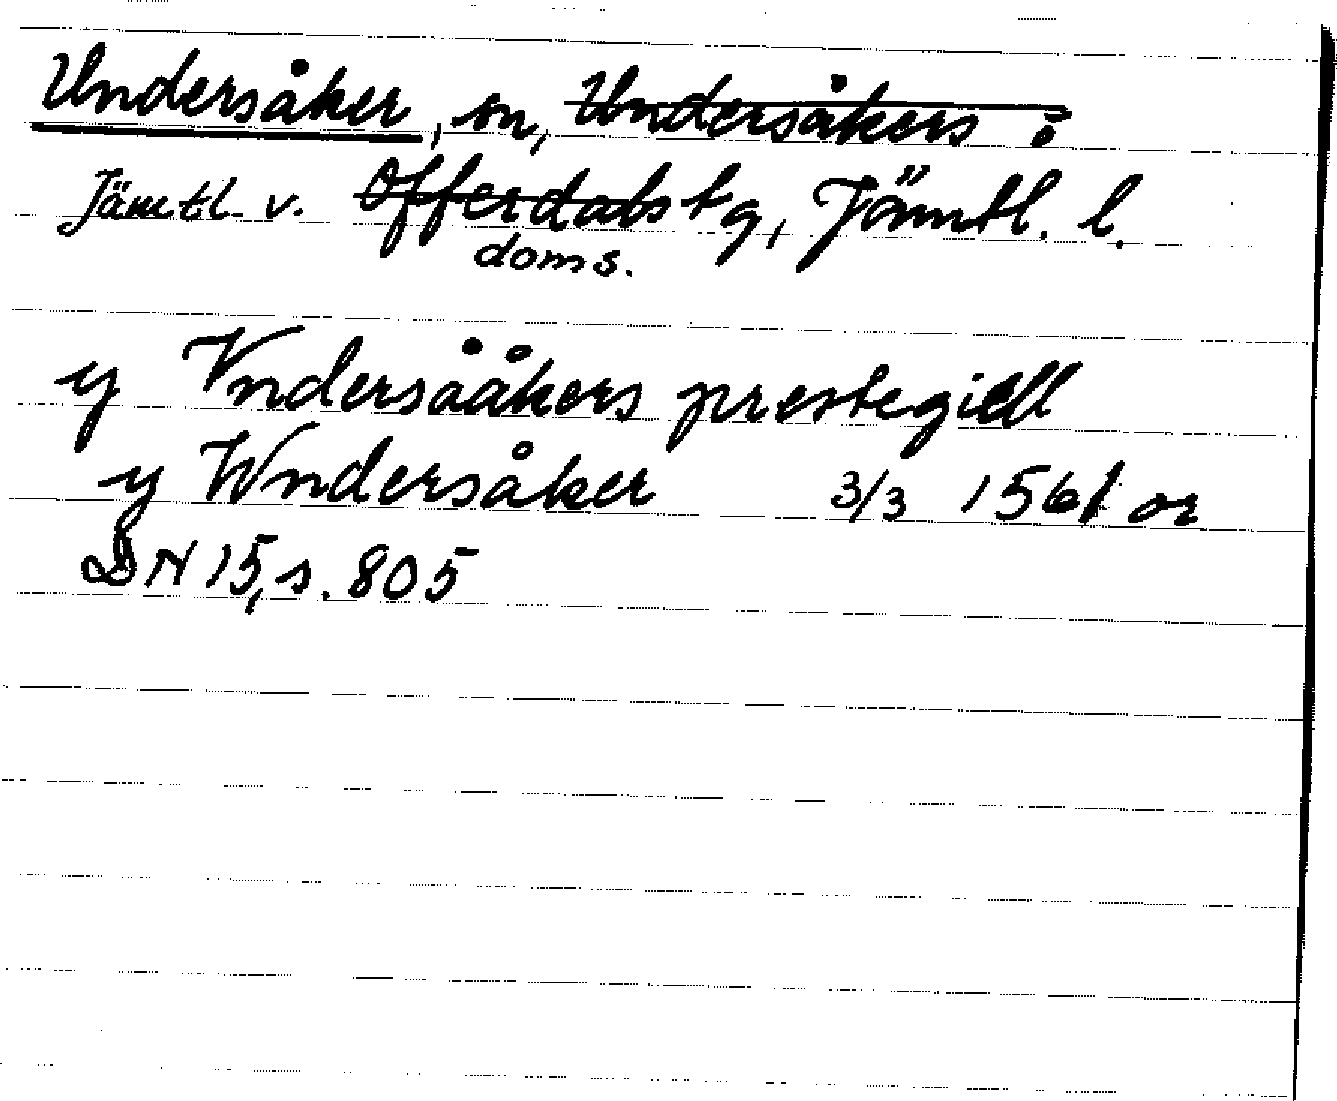 Undersåker, sn, Undersåkers i
Jämtl. v. Offerdals tg, Jämtl. l.
doms.
y Vndersååkers prestegield
y Wndersåker 3/3 1561 or
DN 15, s. 805